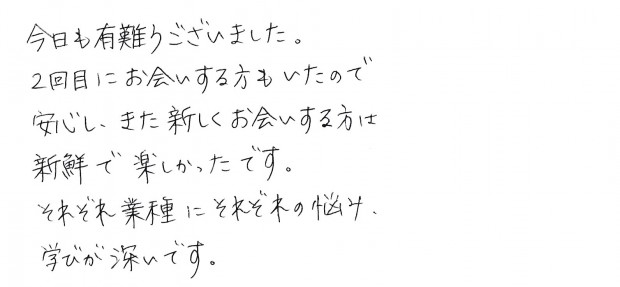 今日も有難うございました。
2回目にお会いする方もいたので
安心し、また新しくお会いする方は
新鮮で楽しかったです。
それぞれ業種にそれぞれの悩み、
学びが深いです。